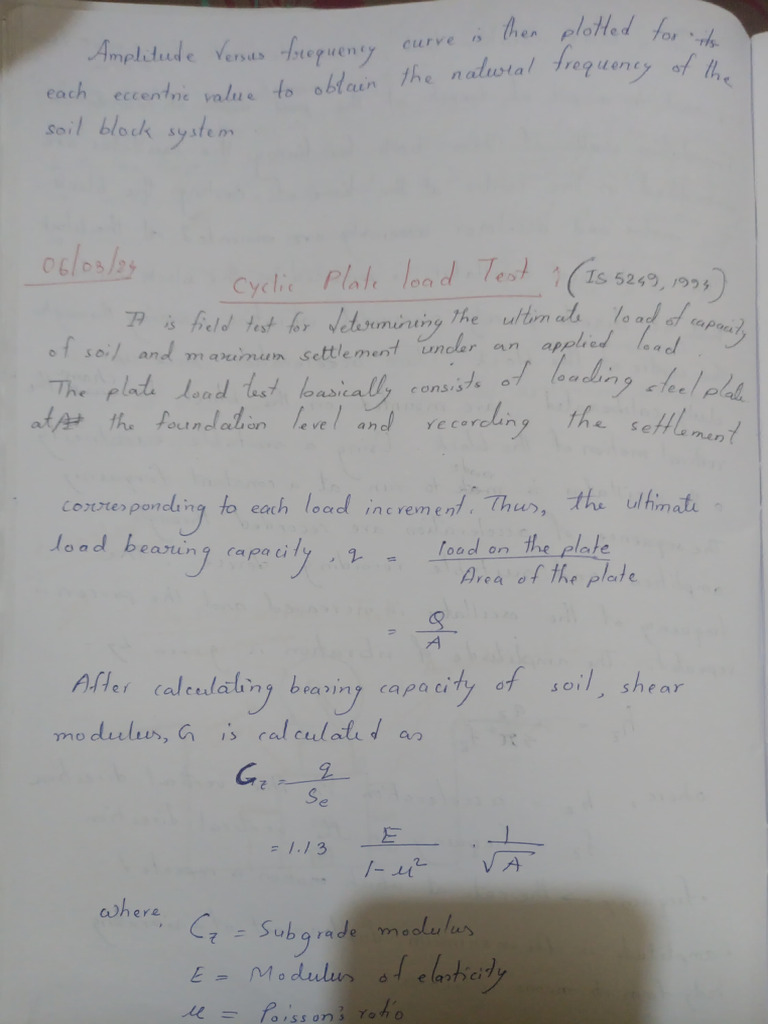 Amplitude versus frequency curve is then plotted for
each eccentric value to obtain the natural frequency of the
soil block system
06/03/24
Cyclic Plate load Test : (IS 5249, 1994)
It is field test for determining the ultimate load of capacity
of soil and maximum settlement under an applied load.
The plate load test basically consists of loading steel plate
at the foundation level and recording the settlement
corresponding to each load increment. Thus, the ultimate
load bearing capacity, q = load on the plate / Area of the plate
= Q / A
After calculating bearing capacity of soil, shear
modulus, G is calculated as
Gz = q / Se
= 1.13 E / 1-μ² . 1 / √A
where,
Cz = Subgrade modulus
E = Modulus of elasticity
μ = Poisson's ratio